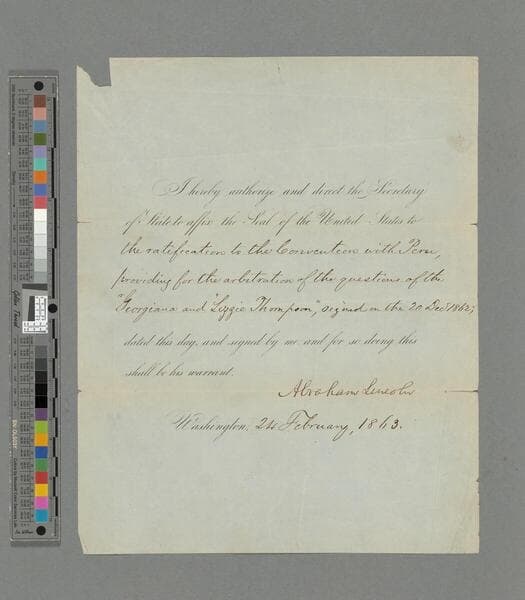 I hereby authorize and direct the Secretary
of State to affix the Seal of the United States to
the ratification to the Convention with Peru,
providing for the arbitration of the questions of the
"Georgiana and "Lizzie Thompson", signed on the 20 Dec 1862;
dated this day, and signed by me and for so doing this
shall be his warrant.
Abraham Lincoln
Washington, 24 February, 1863.